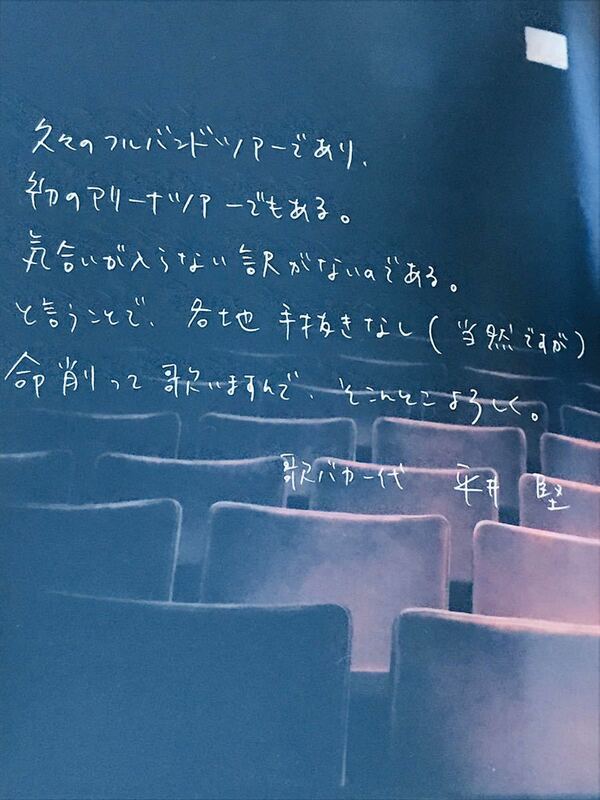 久々のフルバンドツアーであり、
初のアリーナツアーでもある。
気合いが入らない訳がないのである。
と言うことで、各地 手抜きなし(当然ですが)
命削って歌いますんで、そこんとこよろしく。
歌バカ一代 平井 堅